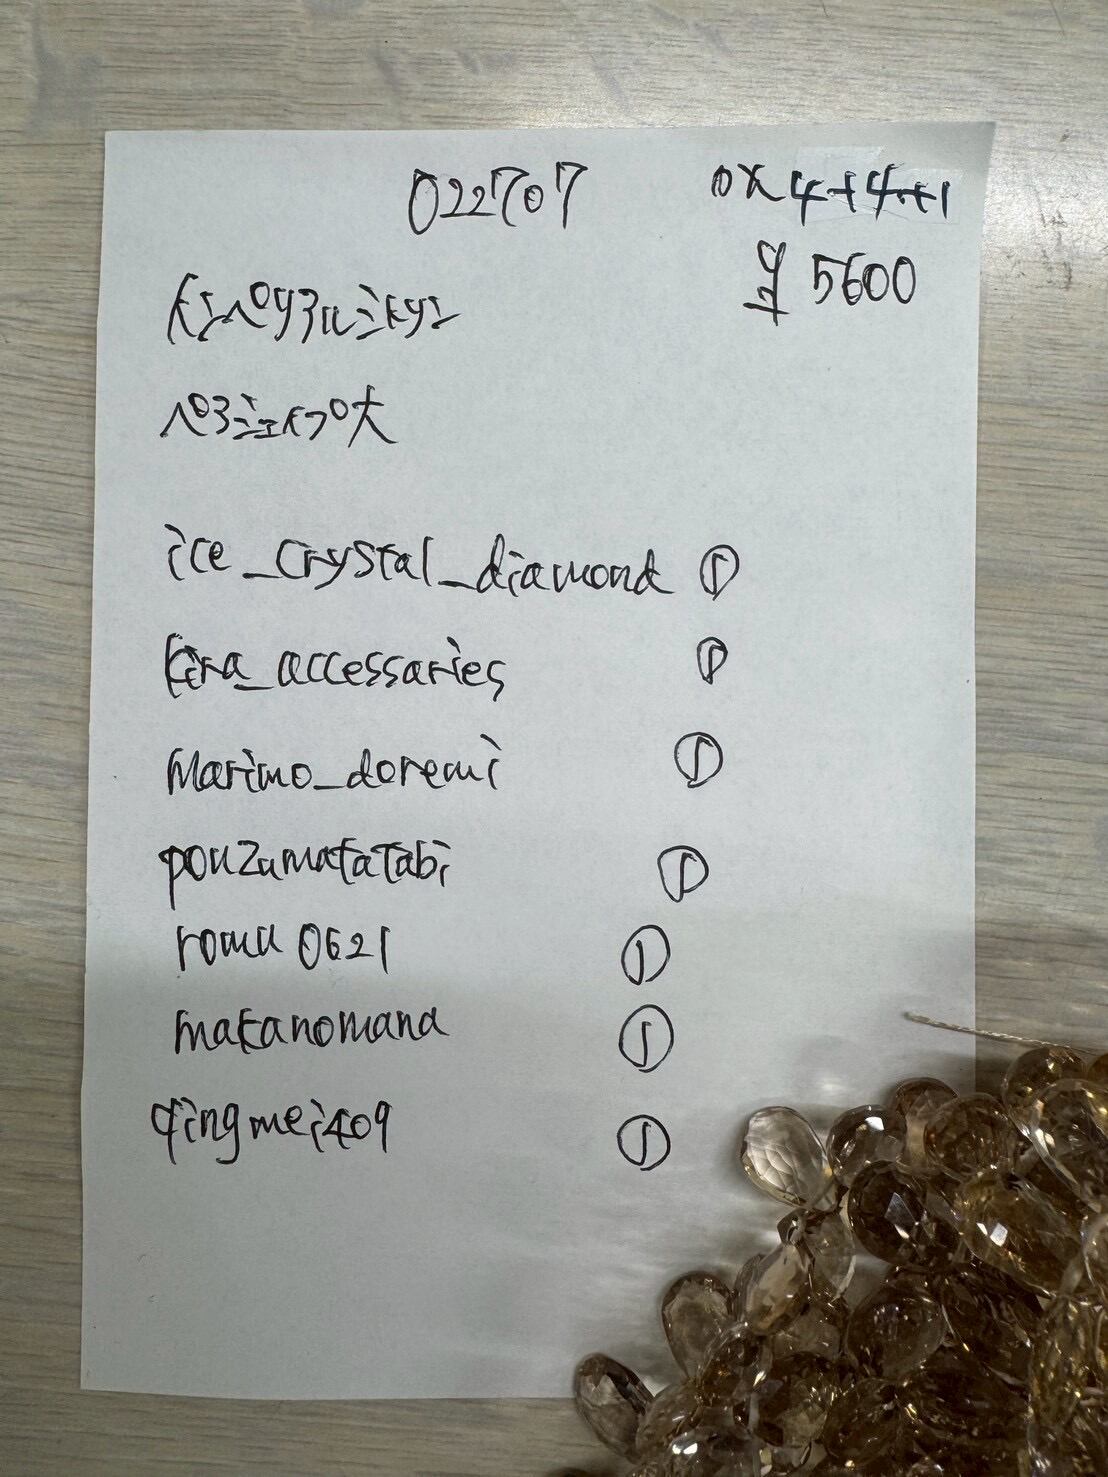 022707
0x4+4+1
¥5600
インペリアルシャイン
ペアシェイプ大
ice_crystal_diamond ①
kira_accessaries ①
marimo_doremi ①
ponzumatatabi ①
romu0621 ①
makanomana ①
qingmei409 ①